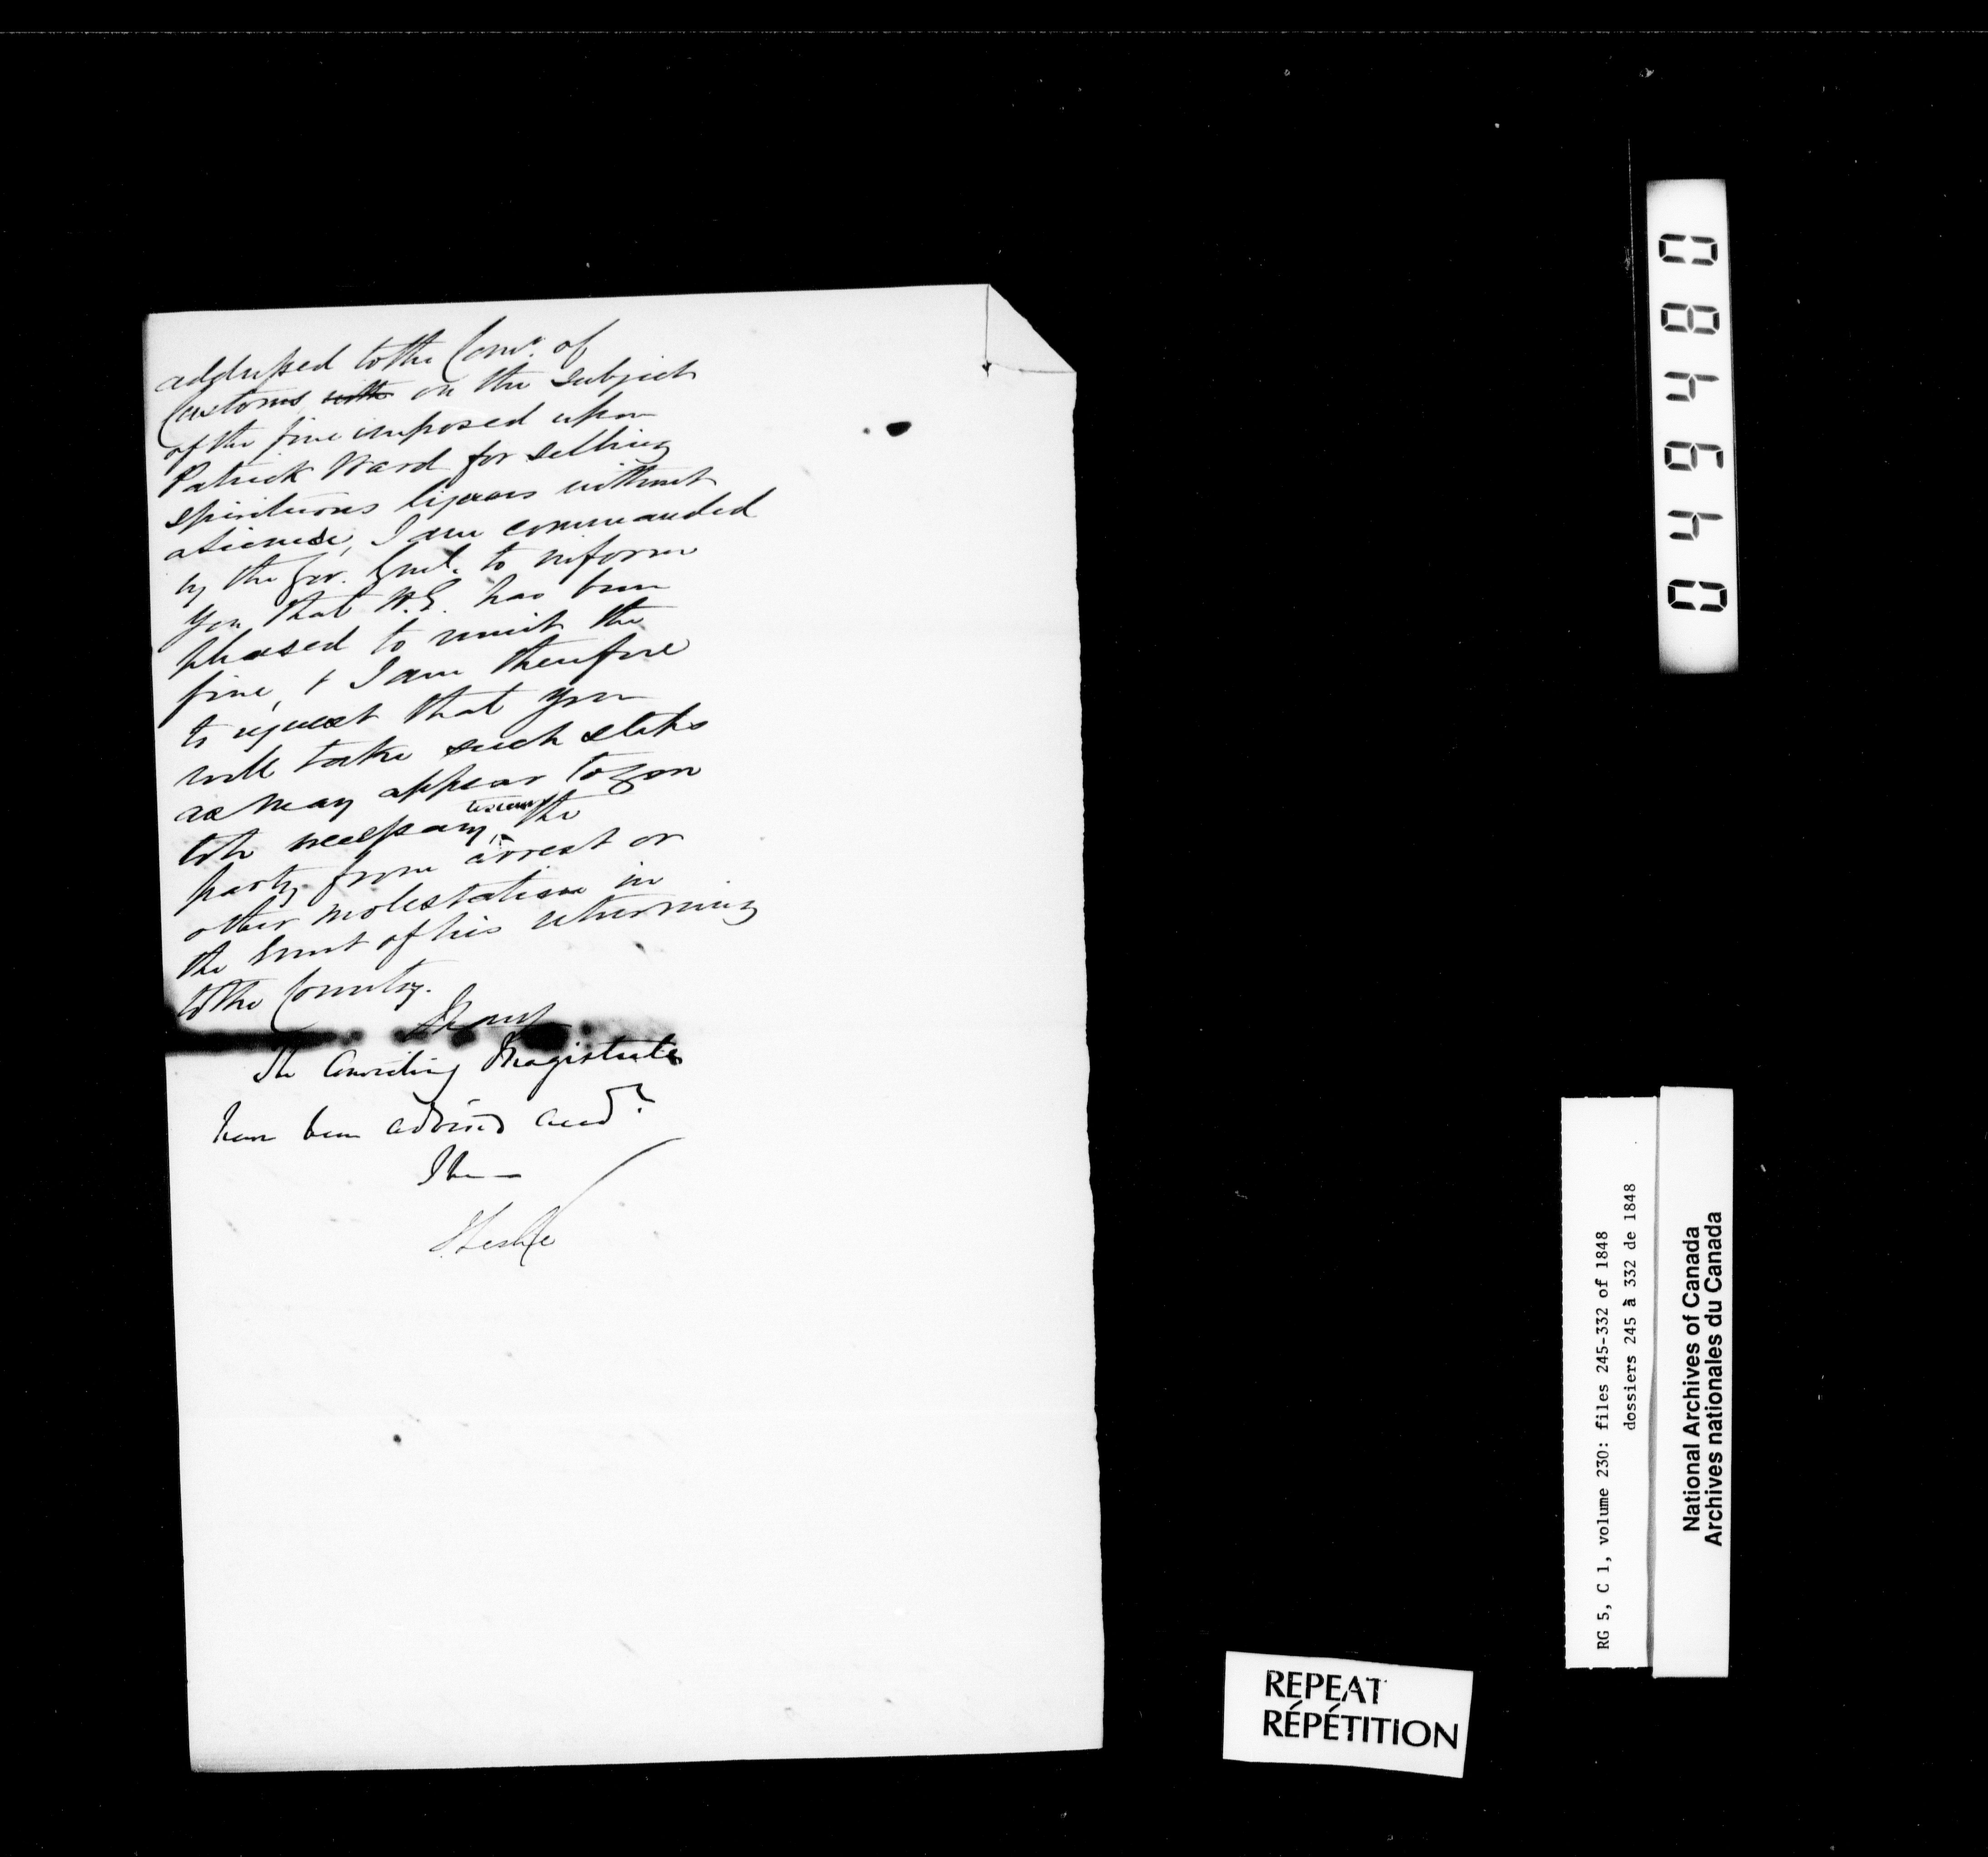 addressed to the Comr. of
Customs with on the subject
of the fine imposed upon
Patrick Ward for selling
spirituous liquors without
a license, I am commanded
by the Gov. Genl. to inform
you that H.E. has been
pleased to remit the
fine, & I am therefore
to request that you
will take such steps
as may appear to you
to be necessary, to secure the
party from arrest or
other molestation in
the event of his returning
to the Country.
The Convicting Magistrates
have been advised accdy
I have
JLeslie
044840
RG 5, C 1, volume 230: files 245-332 of 1848
dossiers 245 à 332 de 1848
National Archives of Canada
Archives nationales du Canada
REPEAT
RÉPÉTITION